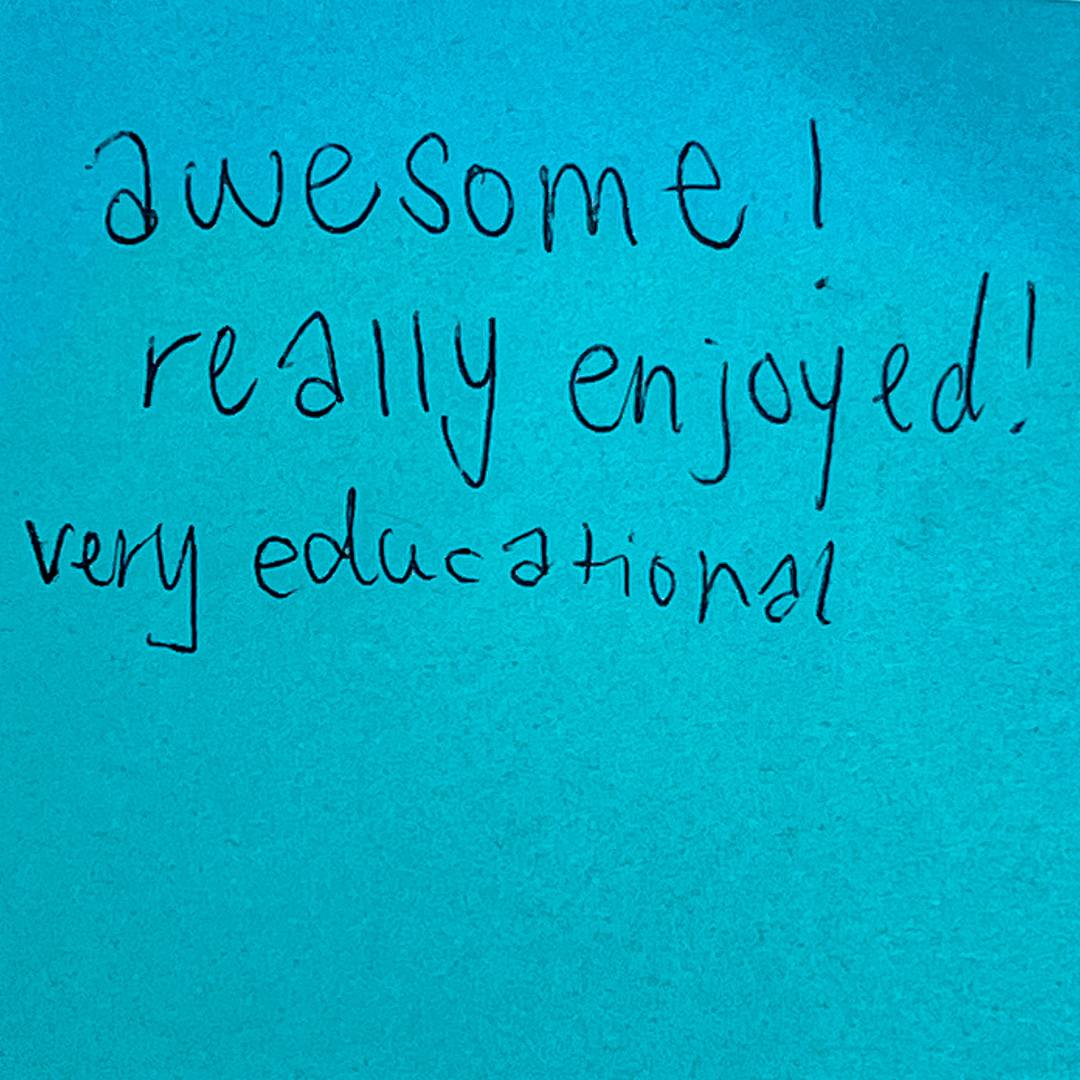 awesome!
really enjoyed!
very educational